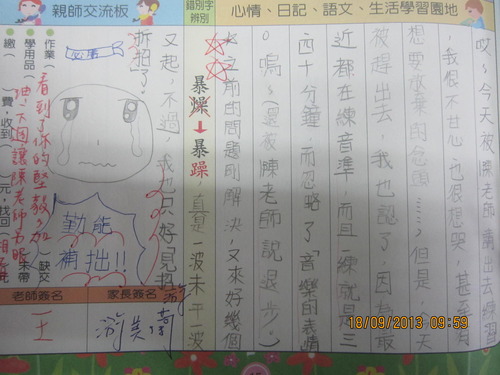 心情、日記、語文、生活學習園地
哎～今天被陳老師出去練習
我很不甘心也很想哭 甚至有
想要放棄的念頭……但是 天
被趕出去，我也認了，因為最
近都在練音準，而且一練就是三
四十分鐘，而忽略了「音樂的表情
。嗚～（還被陳老師說退步。）
之前的問題剛解決，又來好幾個
錯別字辨別
暴燥➡暴躁
，真是一波未平一波
又起，不過，我也只好「見招
拆招」了。
親師交流板
必勝
勤能
補拙!!
作業( )缺交
學用品( )未帶
繳( )費，收到( )元，找回( )元
看到了你的堅毅，加
油，下回讓陳老師為
家長簽名
游美
老師簽名
王
18/09/2013 09:59